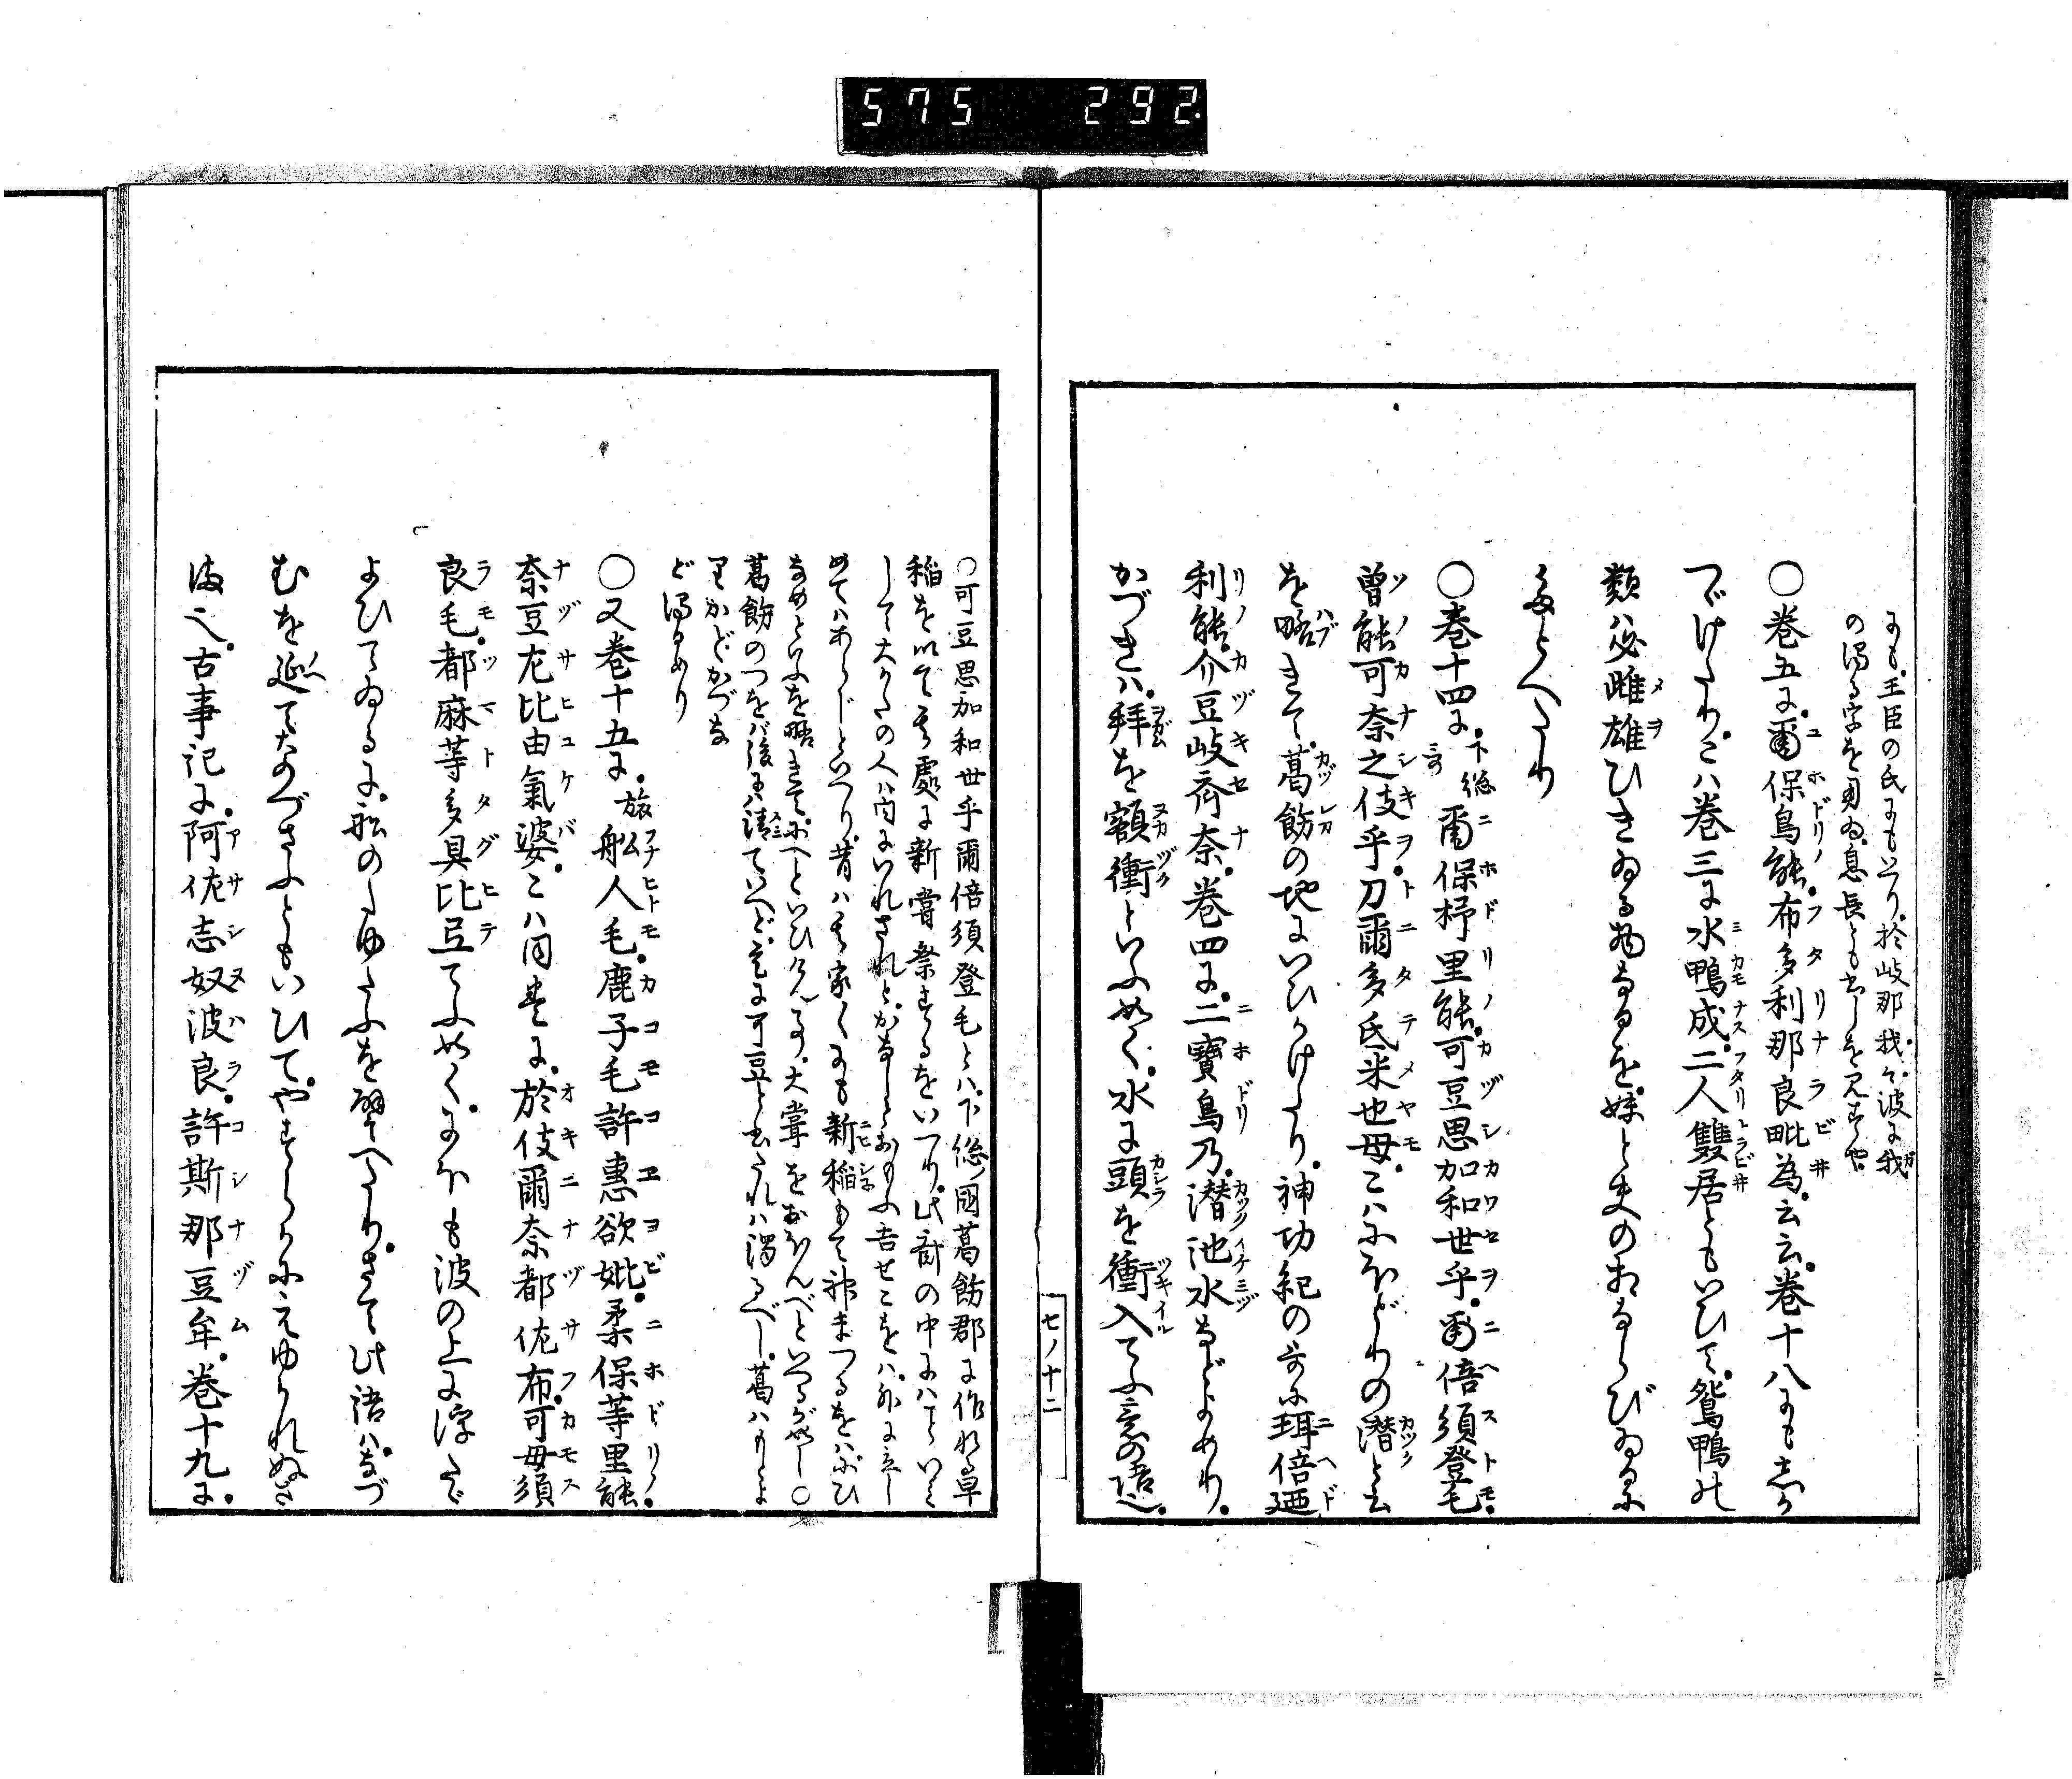 575 292
にも王臣の氏にもとり於岐那我ハ波に我
の濁る字を用ゐ息長とも書しを見せや
○巻五に爾保鳥能布多利那良毗為云云巻十八にも志か
つゞけたりこハ巻三に水鴨成二人雙居ともいひて鴛鴨の
類ハ必雌雄ひきゐる物なるを妹と夫のおならびゐるに
たとへたり
○巻十四に下総哥爾保杼里能可豆思加和世乎爾倍須登毛
曽能可奈之伎乎刀爾多氐米也母こハにほどりの潜と云
を略きて葛飾の地にいひかけたり神功紀の哥に珥倍廼
利能介豆岐齊奈巻四に二寶鳥乃潜池水などよめり
かづきハ拝を額衝といふ如く水に頭を衝入てふ意の語也
七ノ十二
○可豆思加和世乎爾倍須登毛とハ下総國葛飾郡に作れる早
稲を以て其處に新嘗祭するをいへり此齋の中にハ
して大かたの人ハ内にいれされどかなしとおもふ吾せこをハ外に立し
めてハあらじといへり昔ハ其家々にも新稲もて神まつるをハにひ
なめといふを略きてにへといひけん事大嘗をおほんべといへるが如し○
葛飾のつをバ後にハ清ていへどこゝに可豆と書たれハ濁るべし葛ハもとよ
りかどかづな
ど濁るめり
○又巻十五に旅船人毛鹿子毛許惠欲妣柔保等里能
奈豆左比由氣婆こハ同巻に於伎爾奈都佐布可母須
良毛都麻等多具比弖てふ如くにほも波の上に浮たゞ
よひてゐるに船のたゆたふを譬へたりさて此語ハなづ
むを延てなづさふともいひてやすらかにえゆかれぬさ
ま也古事記に阿佐志奴波良許斯那豆牟巻十九に